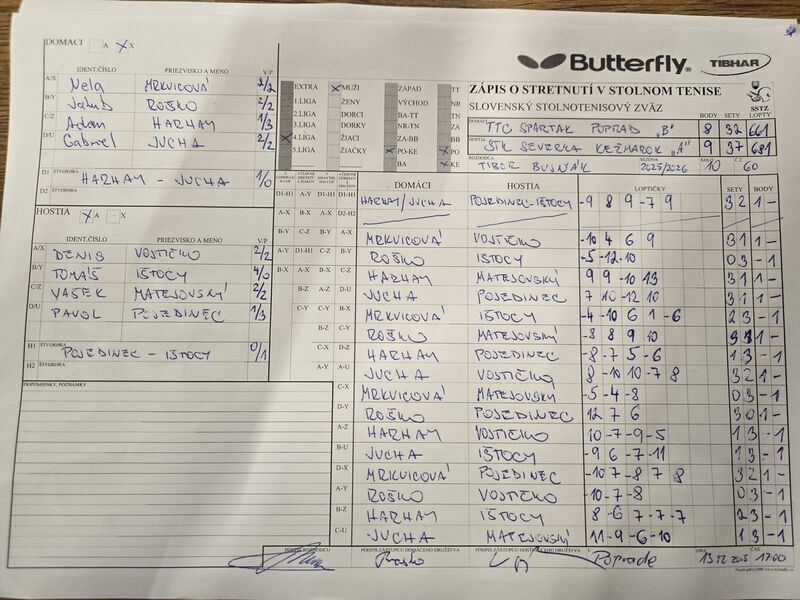 DOMÁCI A X X
IDENT.ČÍSLO PRIEZVISKO A MENO V/P
A/X Nela MRKVICOVÁ 2/2
B/Y Jakub ROŠKO 2/2
C/Z Adam HARHAY 1/3
D/U Gabriel JUCHA 2/2
D1 ŠTVORHRA HARHAY - JUCHA 1/0
D2 ŠTVORHRA
HOSTIA X A X
IDENT.ČÍSLO PRIEZVISKO A MENO V/P
A/X DENIS VOSTIČKO 2/2
B/Y TOMÁŠ IŠTOCY 4/0
C/Z VAŠEK MATEJOVSKÝ 2/2
D/U PAVOL POJEDINEC 1/3
H1 ŠTVORHRA POJEDINEC - IŠTOCY 0/1
H2 ŠTVORHRA
PRIPOMIENKY, POZNÁMKY
Butterfly TIBHAR
ZÁPIS O STRETNUTÍ V STOLNOM TENISE
SLOVENSKÝ STOLNOTENISOVÝ ZVÄZ
SSTZ
BODY SETY LOPTY
DOMÁCI TTC SPARTAK POPRAD "B" 8 32 661
HOSTIA STK SEVERKA KEŽMAROK "A" 9 37 681
ROZHODCA TIBOR BUSNÁK SEZÓNA 2025/2026 KOLO 10 Č.Z. 60
EXTRA X MUŽI ZÁPAD TT
1.LIGA ŽENY VÝCHOD NR
2.LIGA DORCI BA-TT TN
3.LIGA DORKY TN-NR ZA
X 4.LIGA ŽIACI ZA-BB BB
5.LIGA ŽIAČKY X PO-KE X PO
BA X KE
DOMÁCI HOSTIA LOPTIČKY SETY BODY
D1-H1 A-Y D1-H1 HARHAY/JUCHA POJEDINEC-IŠTOCY -9 8 9 -7 9 3 2 1 -
A-X B-X D2-H2
B-Y C-Z A-X MRKVICOVÁ VOSTIČKO -10 4 6 9 3 1 1 -
A-Y D1-H1 C-Z B-Y ROŠKO IŠTOCY -5 -12 -10 0 3 - 1
B-X A-X B-X C-Z HARHAY MATEJOVSKÝ 9 9 -10 13 3 1 1 -
B-Z A-Z D-U JUCHA POJEDINEC 7 10 -12 10 3 1 1 -
C-Y C-Y B-X MRKVICOVÁ IŠTOCY -4 -10 6 1 -6 2 3 - 1
B-Z C-Y ROŠKO MATEJOVSKÝ -8 8 9 10 3 1 1 -
C-X D-Z HARHAY POJEDINEC -8 -7 5 -6 1 3 - 1
A-Y A-U JUCHA VOSTIČKO 8 -10 10 -7 8 3 2 1 -
C-X MRKVICOVÁ MATEJOVSKÝ -5 -4 -8 0 3 - 1
D-Y ROŠKO POJEDINEC 12 7 6 3 0 1 -
A-Z HARHAY VOSTIČKO 10 -7 -9 -5 1 3 - 1
B-U JUCHA IŠTOCY -9 6 -7 -11 1 3 - 1
D-X MRKVICOVÁ POJEDINEC -10 7 -8 7 8 3 2 1 -
A-Y ROŠKO VOSTIČKO -10 -7 -8 0 3 - 1
B-Z HARHAY IŠTOCY 8 -6 7 -7 -7 2 3 - 1
C-U JUCHA MATEJOVSKÝ 11 -9 -6 -10 1 3 - 1
PODPIS ROZHODCU PODPIS ZÁSTUPCU DOMÁCEHO DRUŽSTVA PODPIS ZÁSTUPCU HOSŤUJÚCEHO DRUŽSTVA
Roško Poprade DŇA 13.12.2025 ČAS 17:00